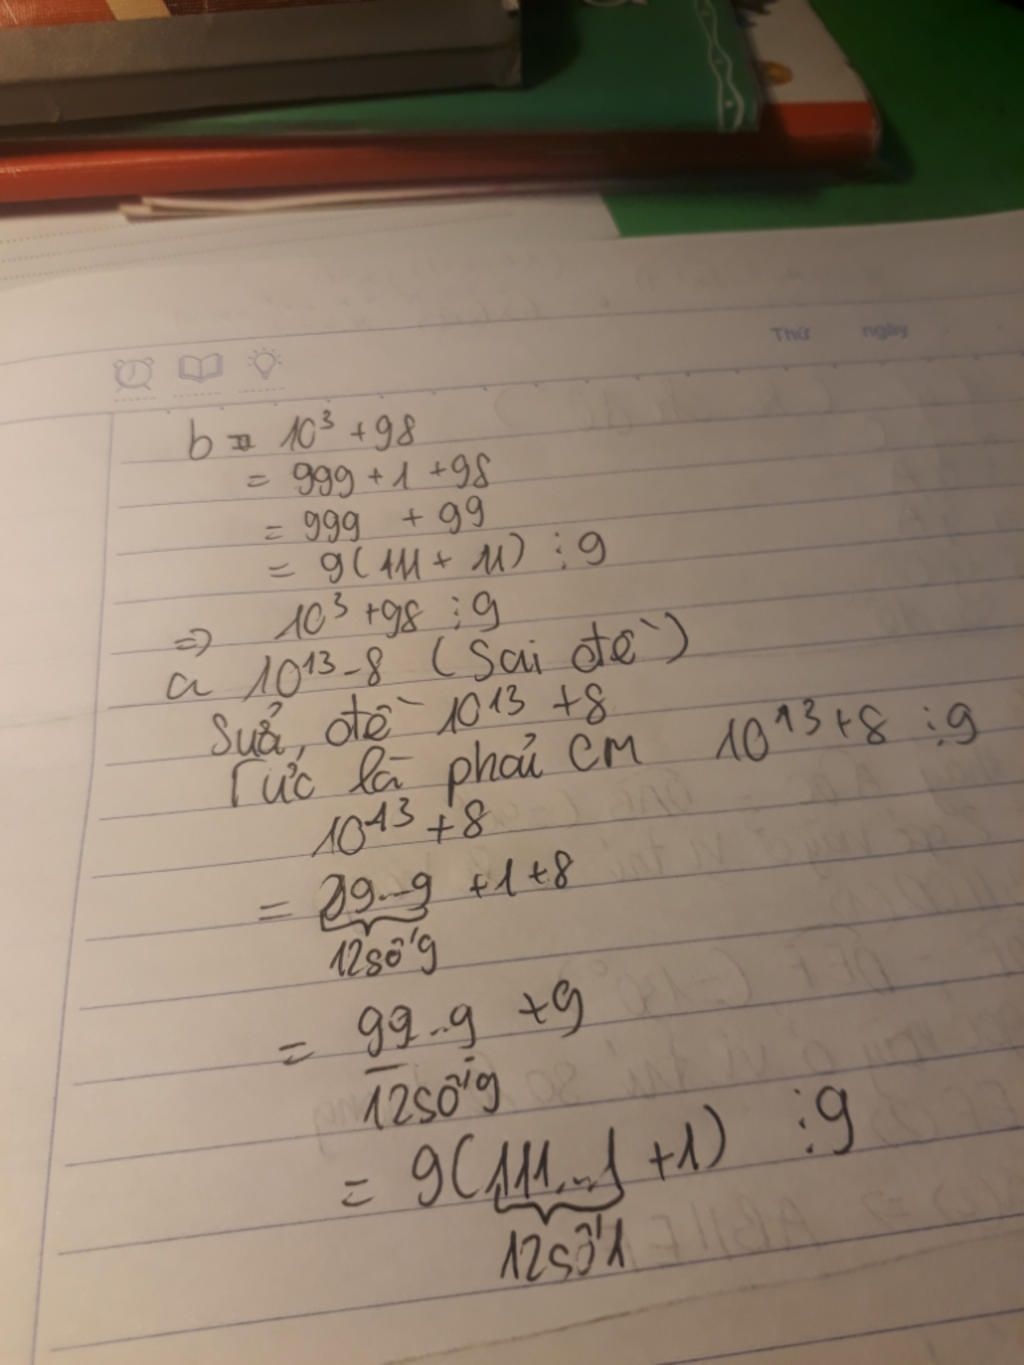 Thứ ngày
b = 10³ + 98
= 999 + 1 + 98
= 999 + 99
= 9(111 + 11) ⋮ 9
=> 10³ + 98 ⋮ 9
a 10¹³ - 8 (Sai đề)
Sửa, đề 10¹³ + 8
Tức là phải CM 10¹³ + 8 ⋮ 9
10¹³ + 8
= 99...9 + 1 + 8
12 số 9
= 99..9 + 9
12 số 9
= 9(111...1 + 1) ⋮ 9
12 số 1